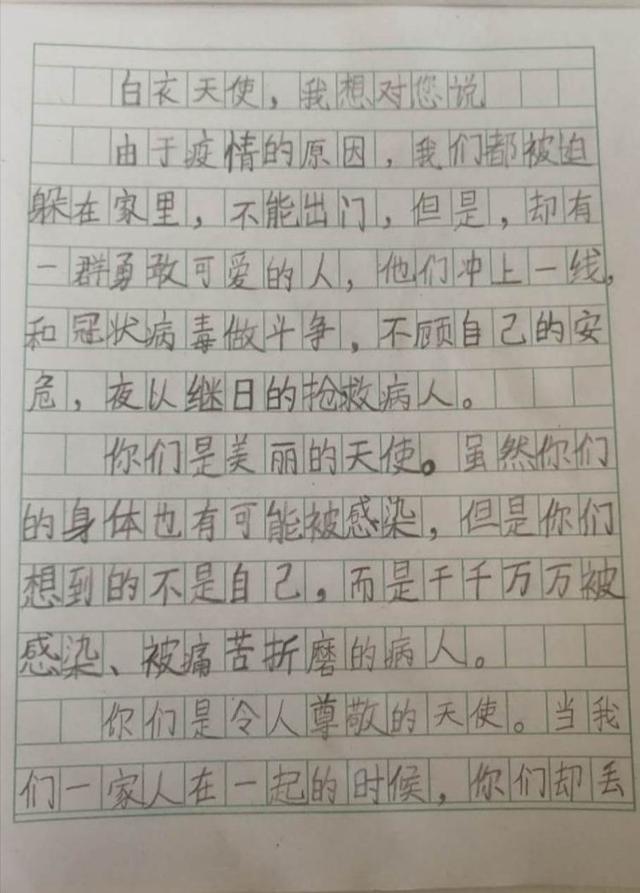 白衣天使，我想对您说
由于疫情的原因，我们都被迫
躲在家里，不能出门，但是，却有
一群勇敢可爱的人，他们冲上一线，
和冠状病毒做斗争，不顾自己的安
危，夜以继日的抢救病人。
你们是美丽的天使。虽然你们
的身体也有可能被感染，但是你们
想到的不是自己，而是千千万万被
感染、被痛苦折磨的病人。
你们是令人尊敬的天使。当我
们一家人在一起的时候，你们却丢